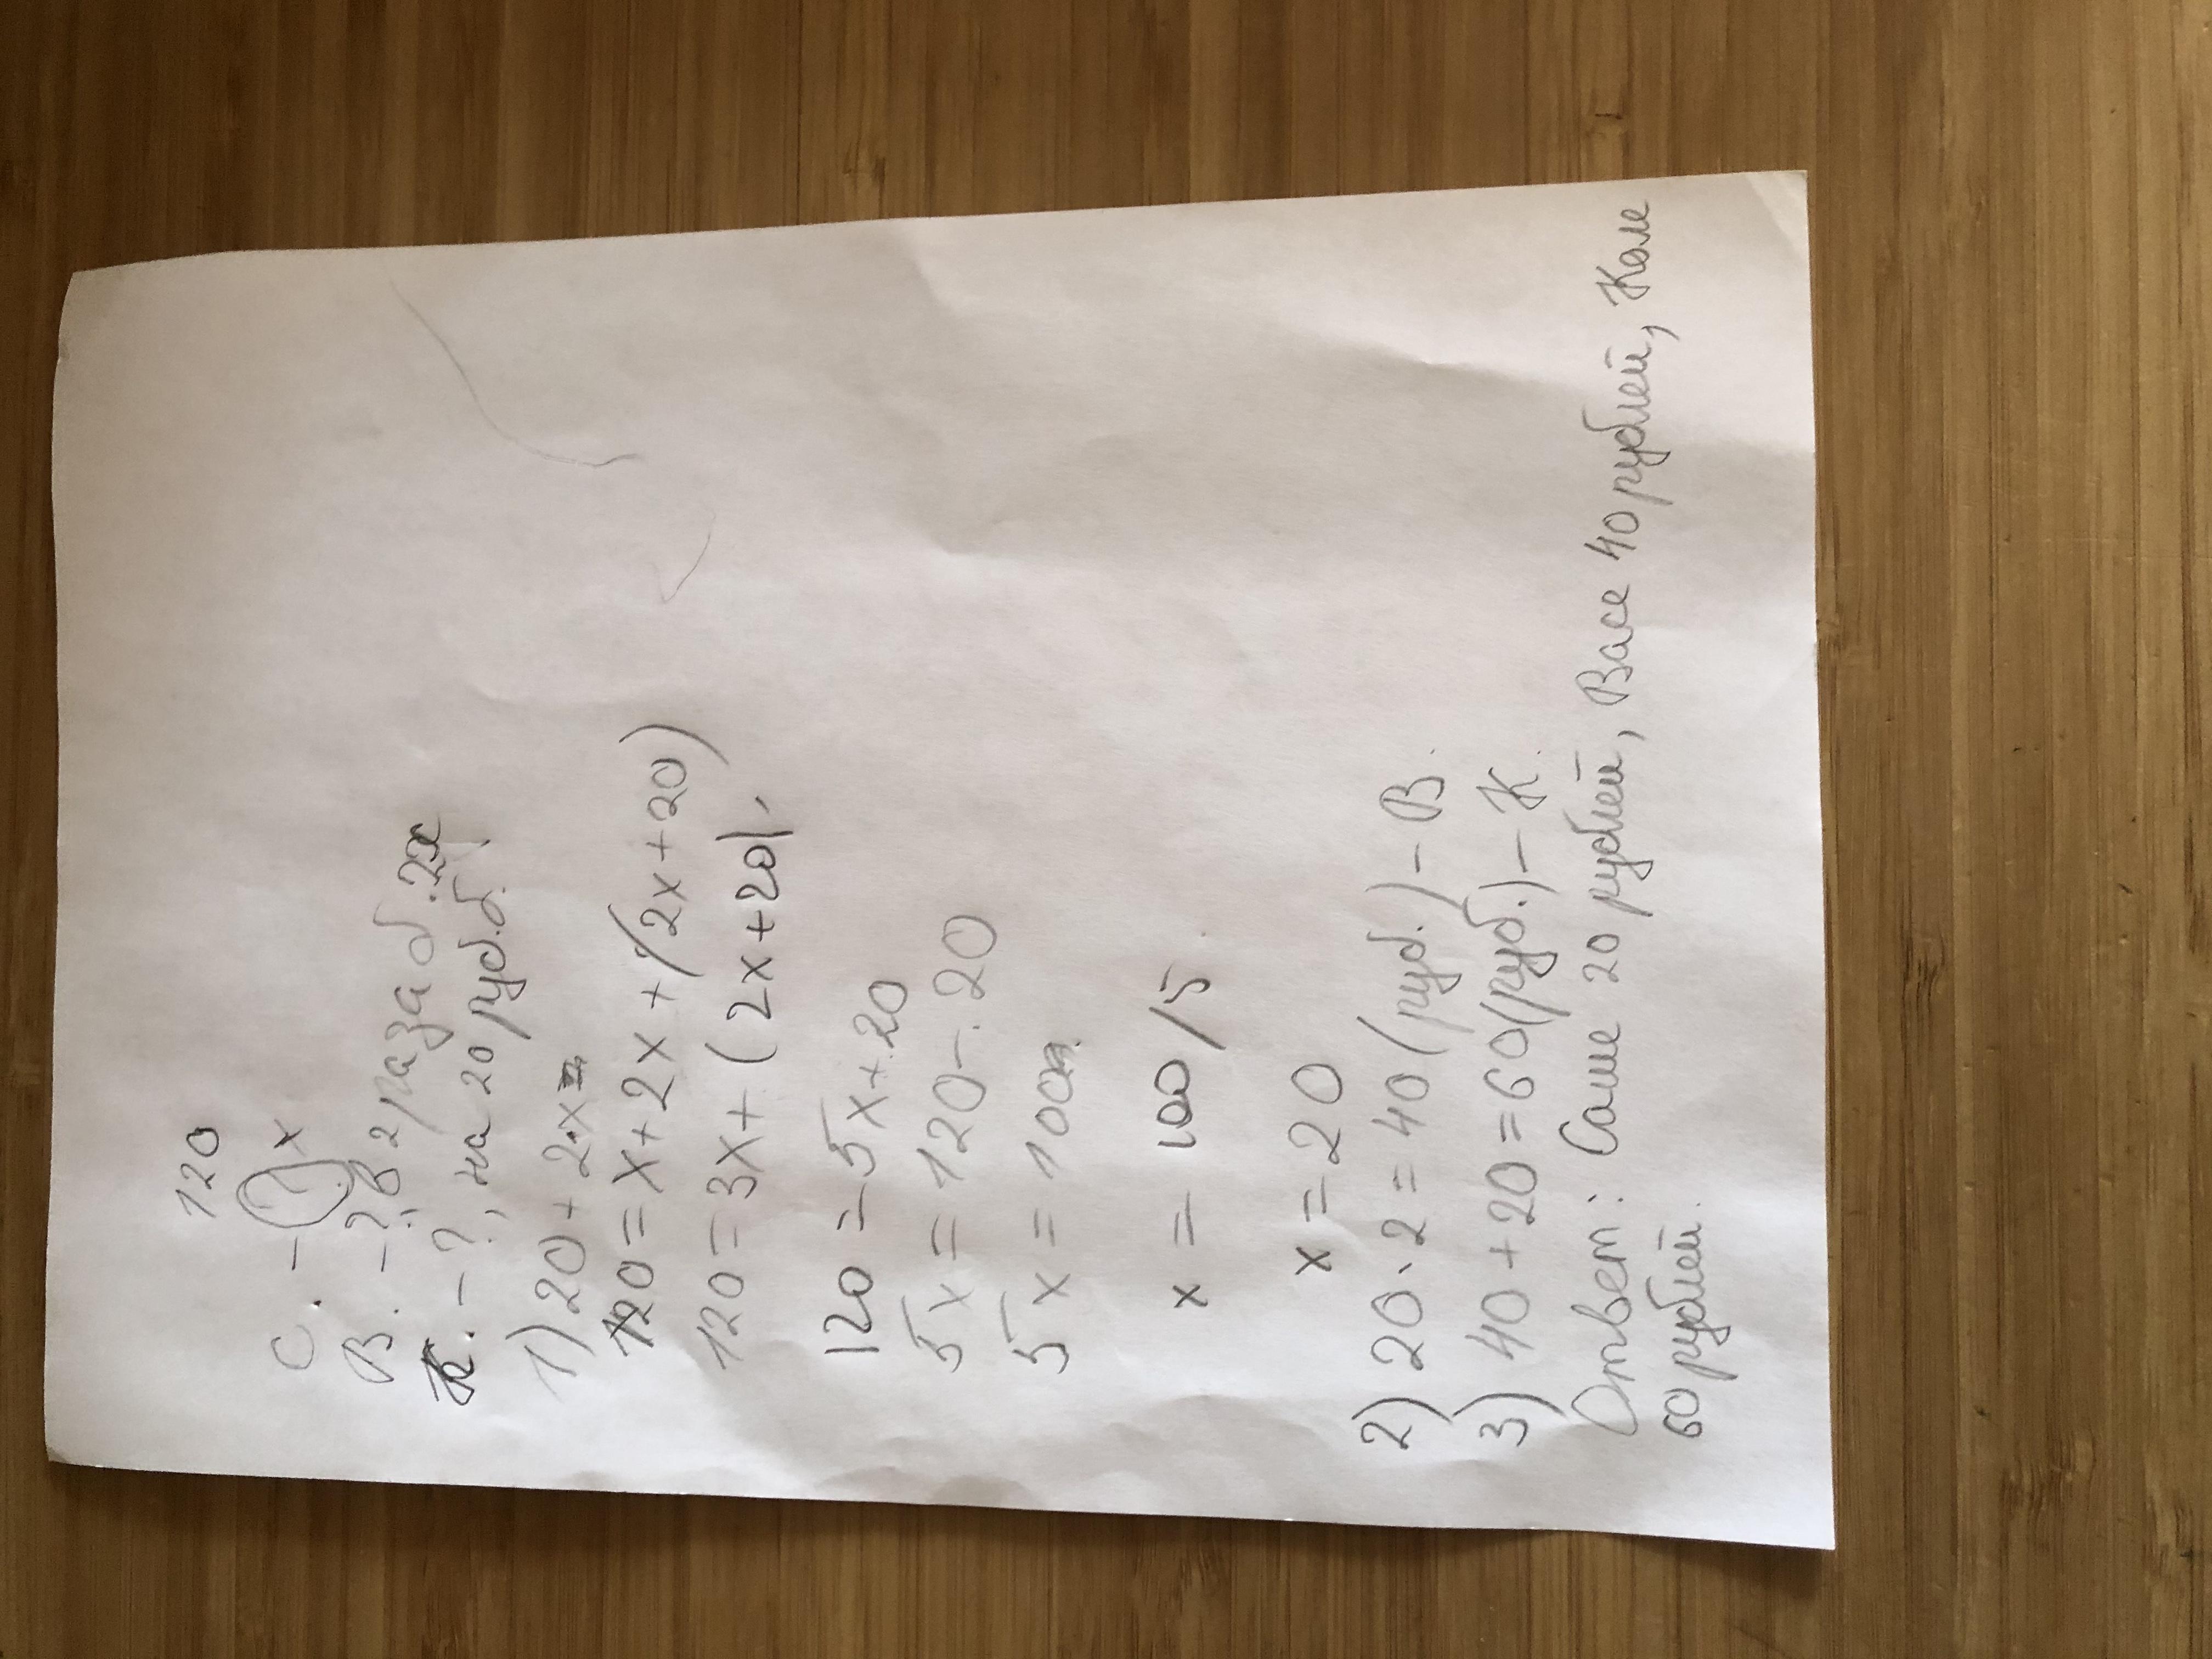 120
С. - ? х
В. - ?, в 2 раза б. 2х
К. - ?, на 20 руб. б.
1) 20 + 2·х =
120 = х + 2х + (2х + 20)
120 = 3х + (2х + 20)
120 = 5х + 20
5х = 120 - 20
5х = 100
х = 100/5
х = 20
2) 20 · 2 = 40 (руб.) - В.
3) 40 + 20 = 60 (руб.) - К.
Ответ: Саше 20 рублей, Васе 40 рублей, Коле
60 рублей.